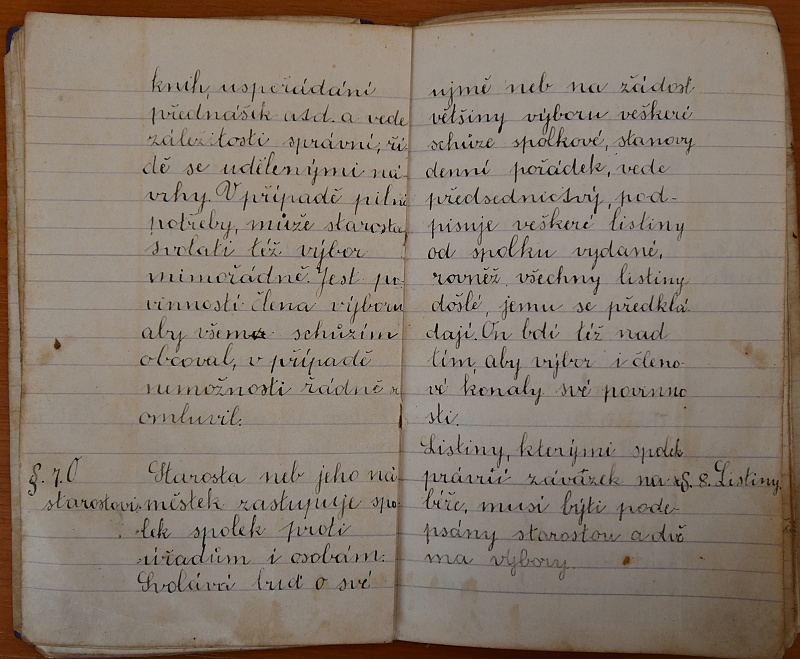 knih, uspořádání
přednášek atd. a vede
záležitosti správní, ří-
dě se udělenými ná-
vrhy. V případě pilné
potřeby, může starosta
svolati též výbor
mimořádně. Jest po-
vinností člena výboru
aby všem schůzím
obcoval, v případě
nemožnosti řádně se
omluvil.
§. 7. O
starostovi.
Starosta neb jeho ná-
městek zastupuje spo-
lek spolek proti
úřadům i osobám.
Svolává buď o své
ujmě neb na žádost
většiny výboru veškeré
schůze spolkové, stanoví
denní pořádek, vede
předsednictvý, pod-
pisuje veškeré listiny
od spolku vydané,
rovněž všechny listiny
došlé, jemu se předklá
dají. On bdí též nad
tím, aby výbor i členo-
vé konaly své povinno
sti.
§. 8. Listiny.
Listiny, kterými spolek
právní závazek na
béře, musí býti pode-
psány starostou a dvě
ma výbory.